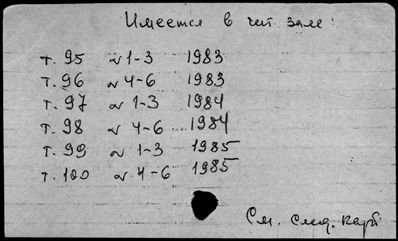 Имеется в чит. зале:
т. 95 № 1-3 1983
т. 96 № 4-6 1983
т. 97 № 1-3 1984
т. 98 № 4-6 1984
т. 99 № 1-3 1985
т. 100 № 4-6 1985
См. след. карт